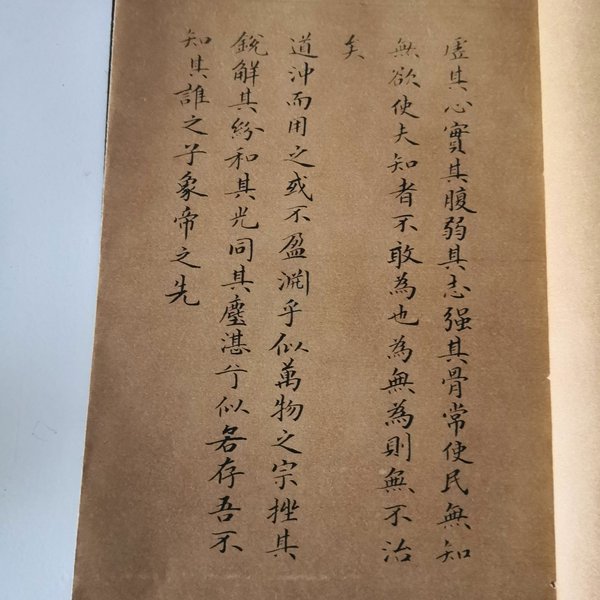 虛其心實其腹弱其志强其骨常使民無知
無欲使夫知者不敢為也為無為則無不治
矣
道沖而用之或不盈淵乎似萬物之宗挫其
銳解其紛和其光同其塵湛兮似若存吾不
知其誰之子象帝之先